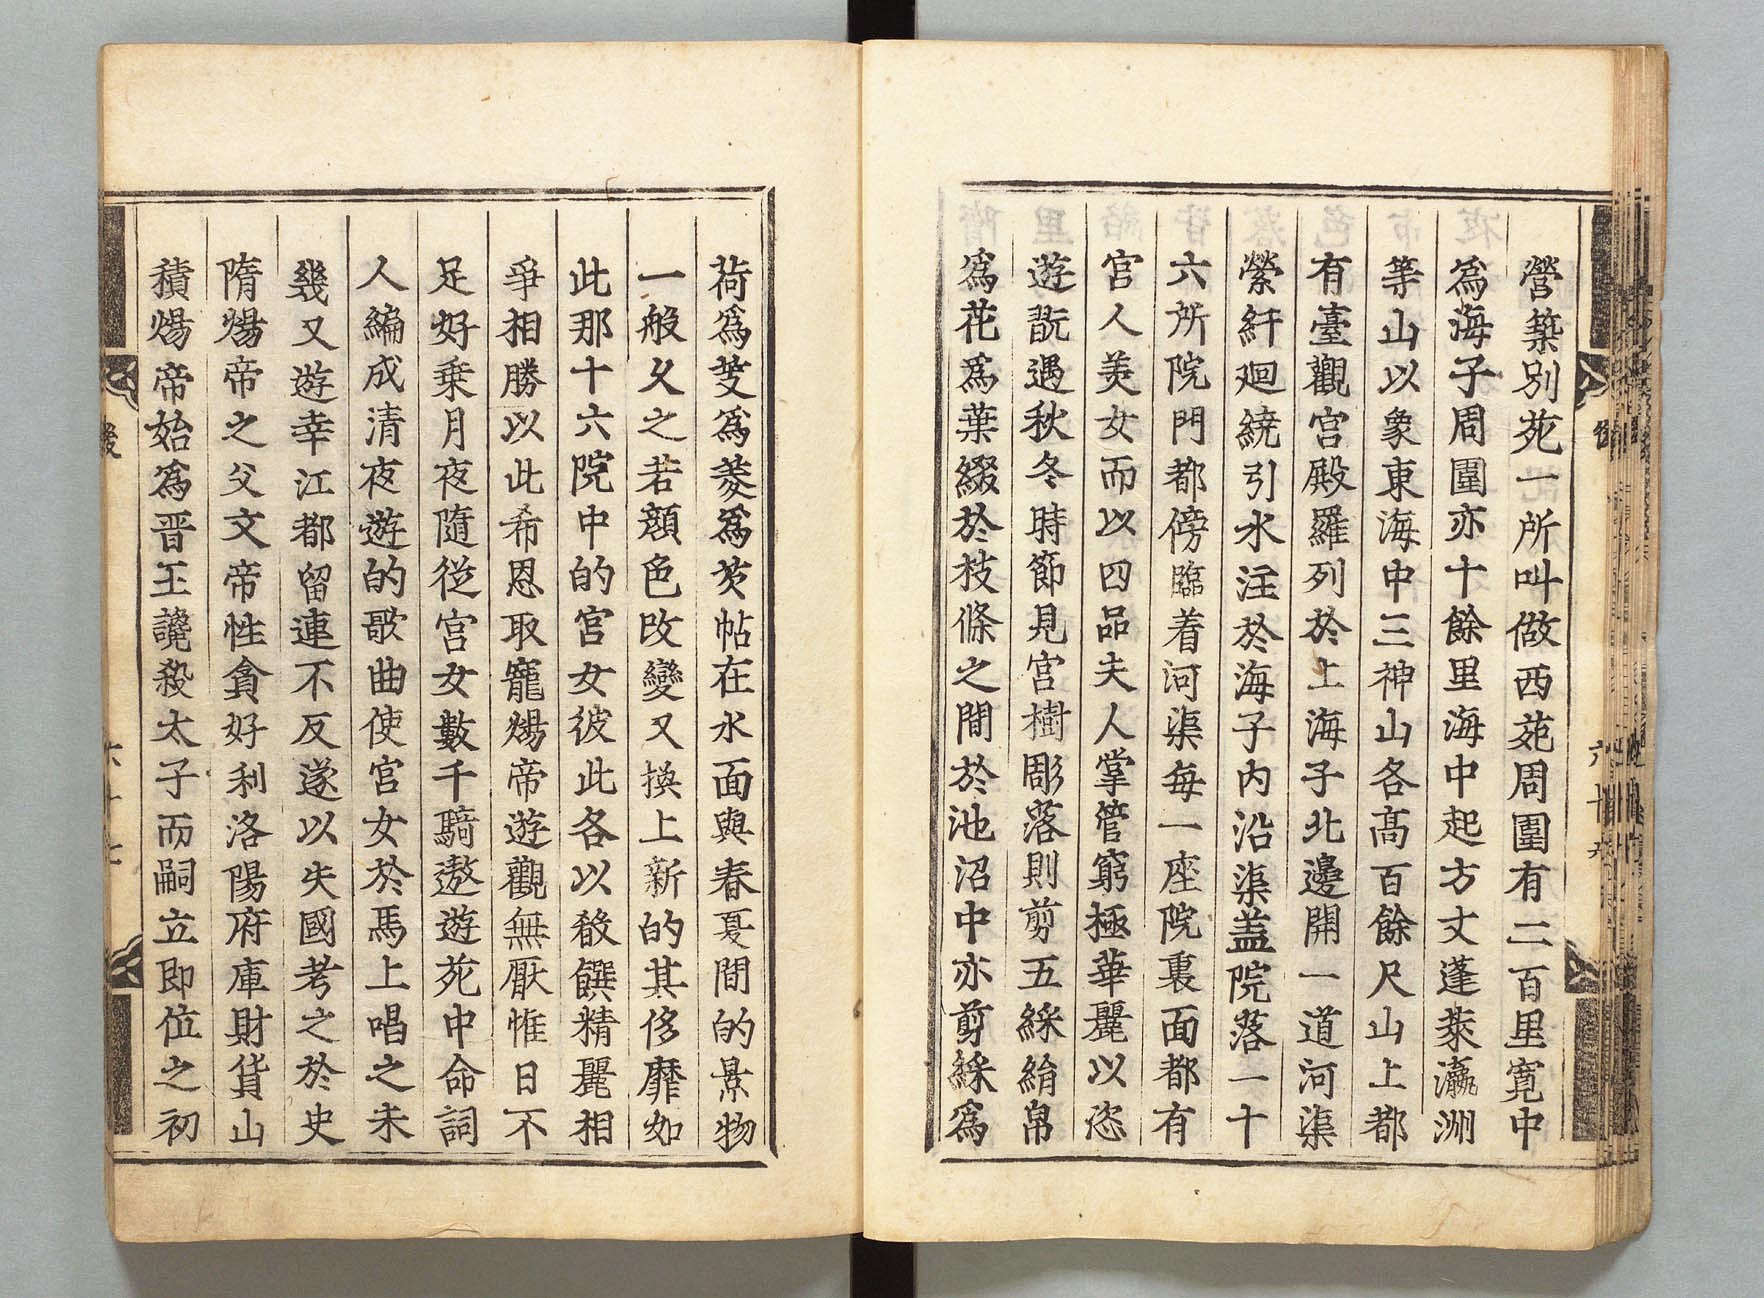 營築別苑一所叫做西苑周圍有二百里寬中
爲海子周圍亦十餘里海中起方丈蓬萊瀛洲
等山以象東海中三神山各高百餘尺山上都
有臺觀宮殿羅列於上海子北邊開一道河渠
縈紆廻繞引水注於海子内沿渠盖院落一十
六所院門都傍臨着河渠每一座院裏面都有
宮人美女而以四品夫人掌管窮極華麗以恣
遊翫遇秋冬時節見宮樹彫落則剪五綵絹帛
爲花爲葉綴於枝條之間於池沼中亦剪綵爲
荷爲芰爲菱爲芡帖在水面與春夏間的景物
一般久之若顏色改變又換上新的其侈靡如
此那十六院中的宮女彼此各以殽饌精麗相
爭相勝以此希恩取寵煬帝遊觀無厭惟日不
足好乗月夜隨從宮女數千騎遨遊苑中命詞
人編成清夜遊的歌曲使宮女於馬上唱之未
幾又遊幸江都留連不反遂以失國考之於史
隋煬帝之父文帝性貪好利洛陽府庫財貨山
積煬帝始爲晋王讒殺太子而嗣立即位之初